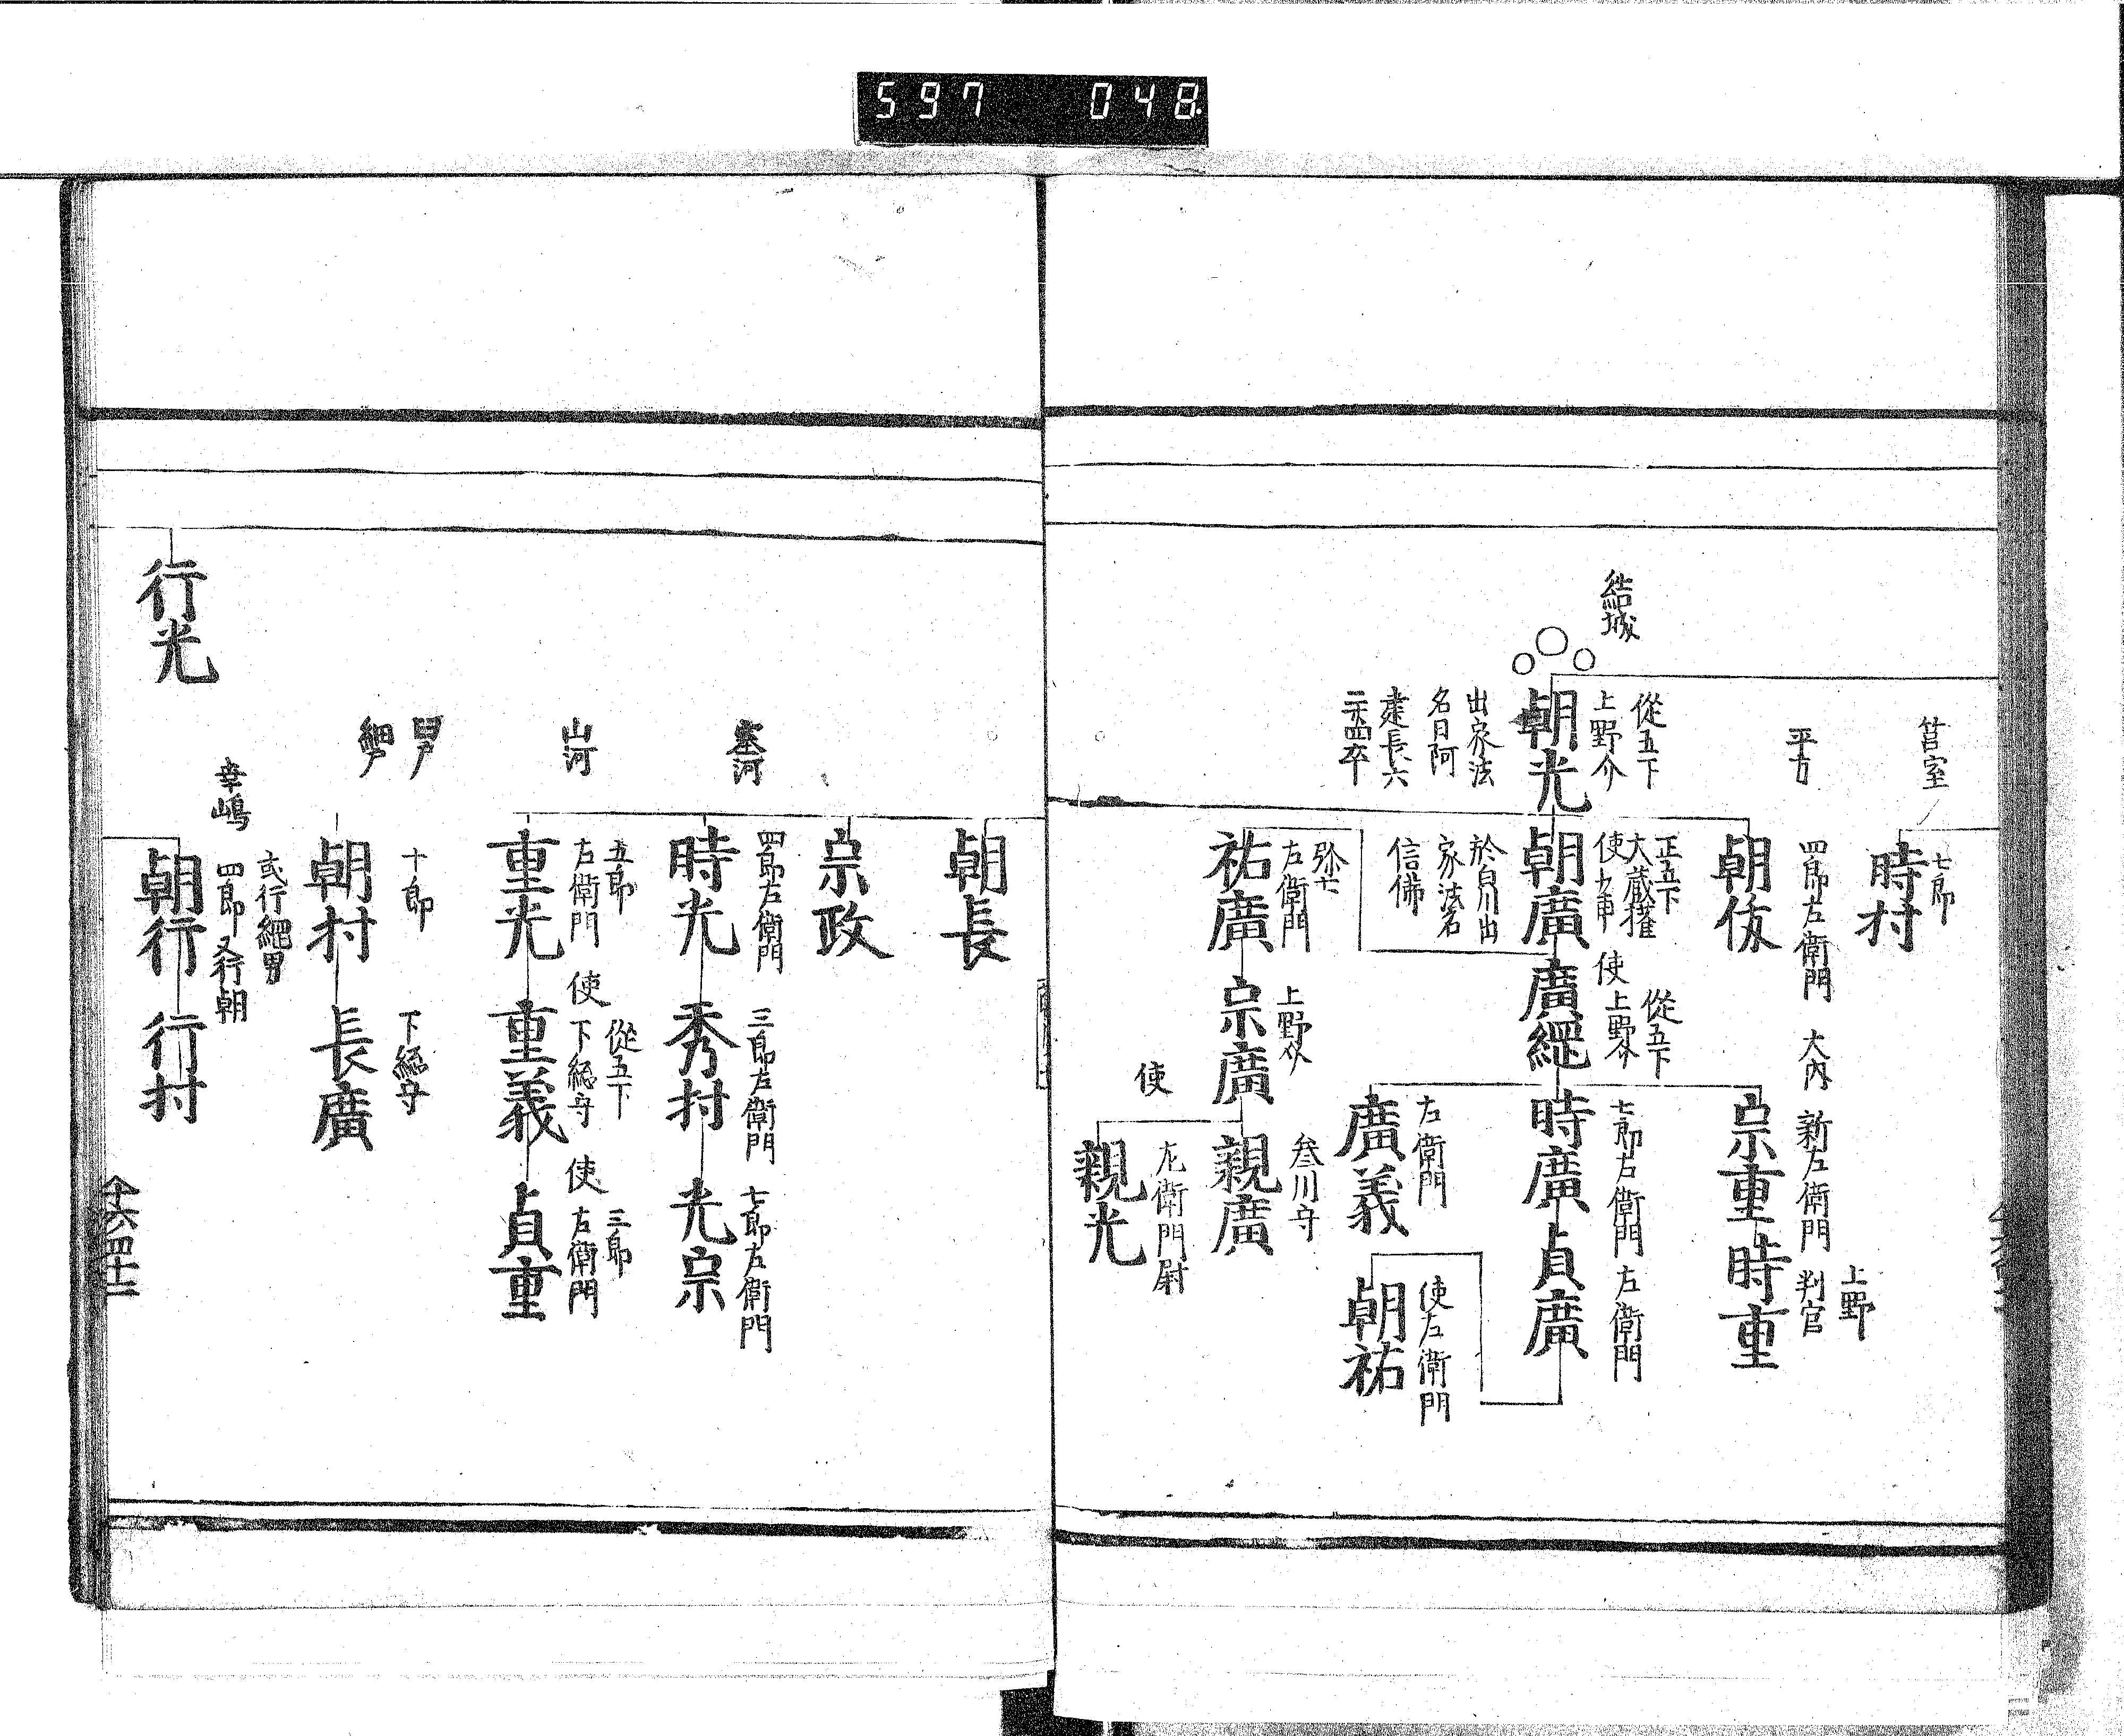 597 048
筥室
七郎
時村
平方
四郎左衛門
朝俊
大内
新左衛門
宗重
上野
判官
時重
結城
從五下
上野介
朝光
出家法
名日阿
建長六
二廿四卒
正五下
大蔵権
朝廣
於白川出
家法名
信佛
使
從五下
上野介
廣綱
七郎左衛門
時廣
左衛門
貞廣
左衛門
廣義
使左衛門
朝祐
弥七
左衛門
祐廣
上野介
宗廣
参川守
親廣
使
左衛門尉
親光
朝長
宗政
寒河
四郎左衛門
時光
三郎左衛門
秀村
七郎左衛門
光宗
山河
五郎
左衛門
重光
使
從五下
下総守
重義
使
三郎
左衛門
貞重
網戸
十郎
朝村
下総守
長廣
幸嶋
四郎又行朝
朝行
行村
行光